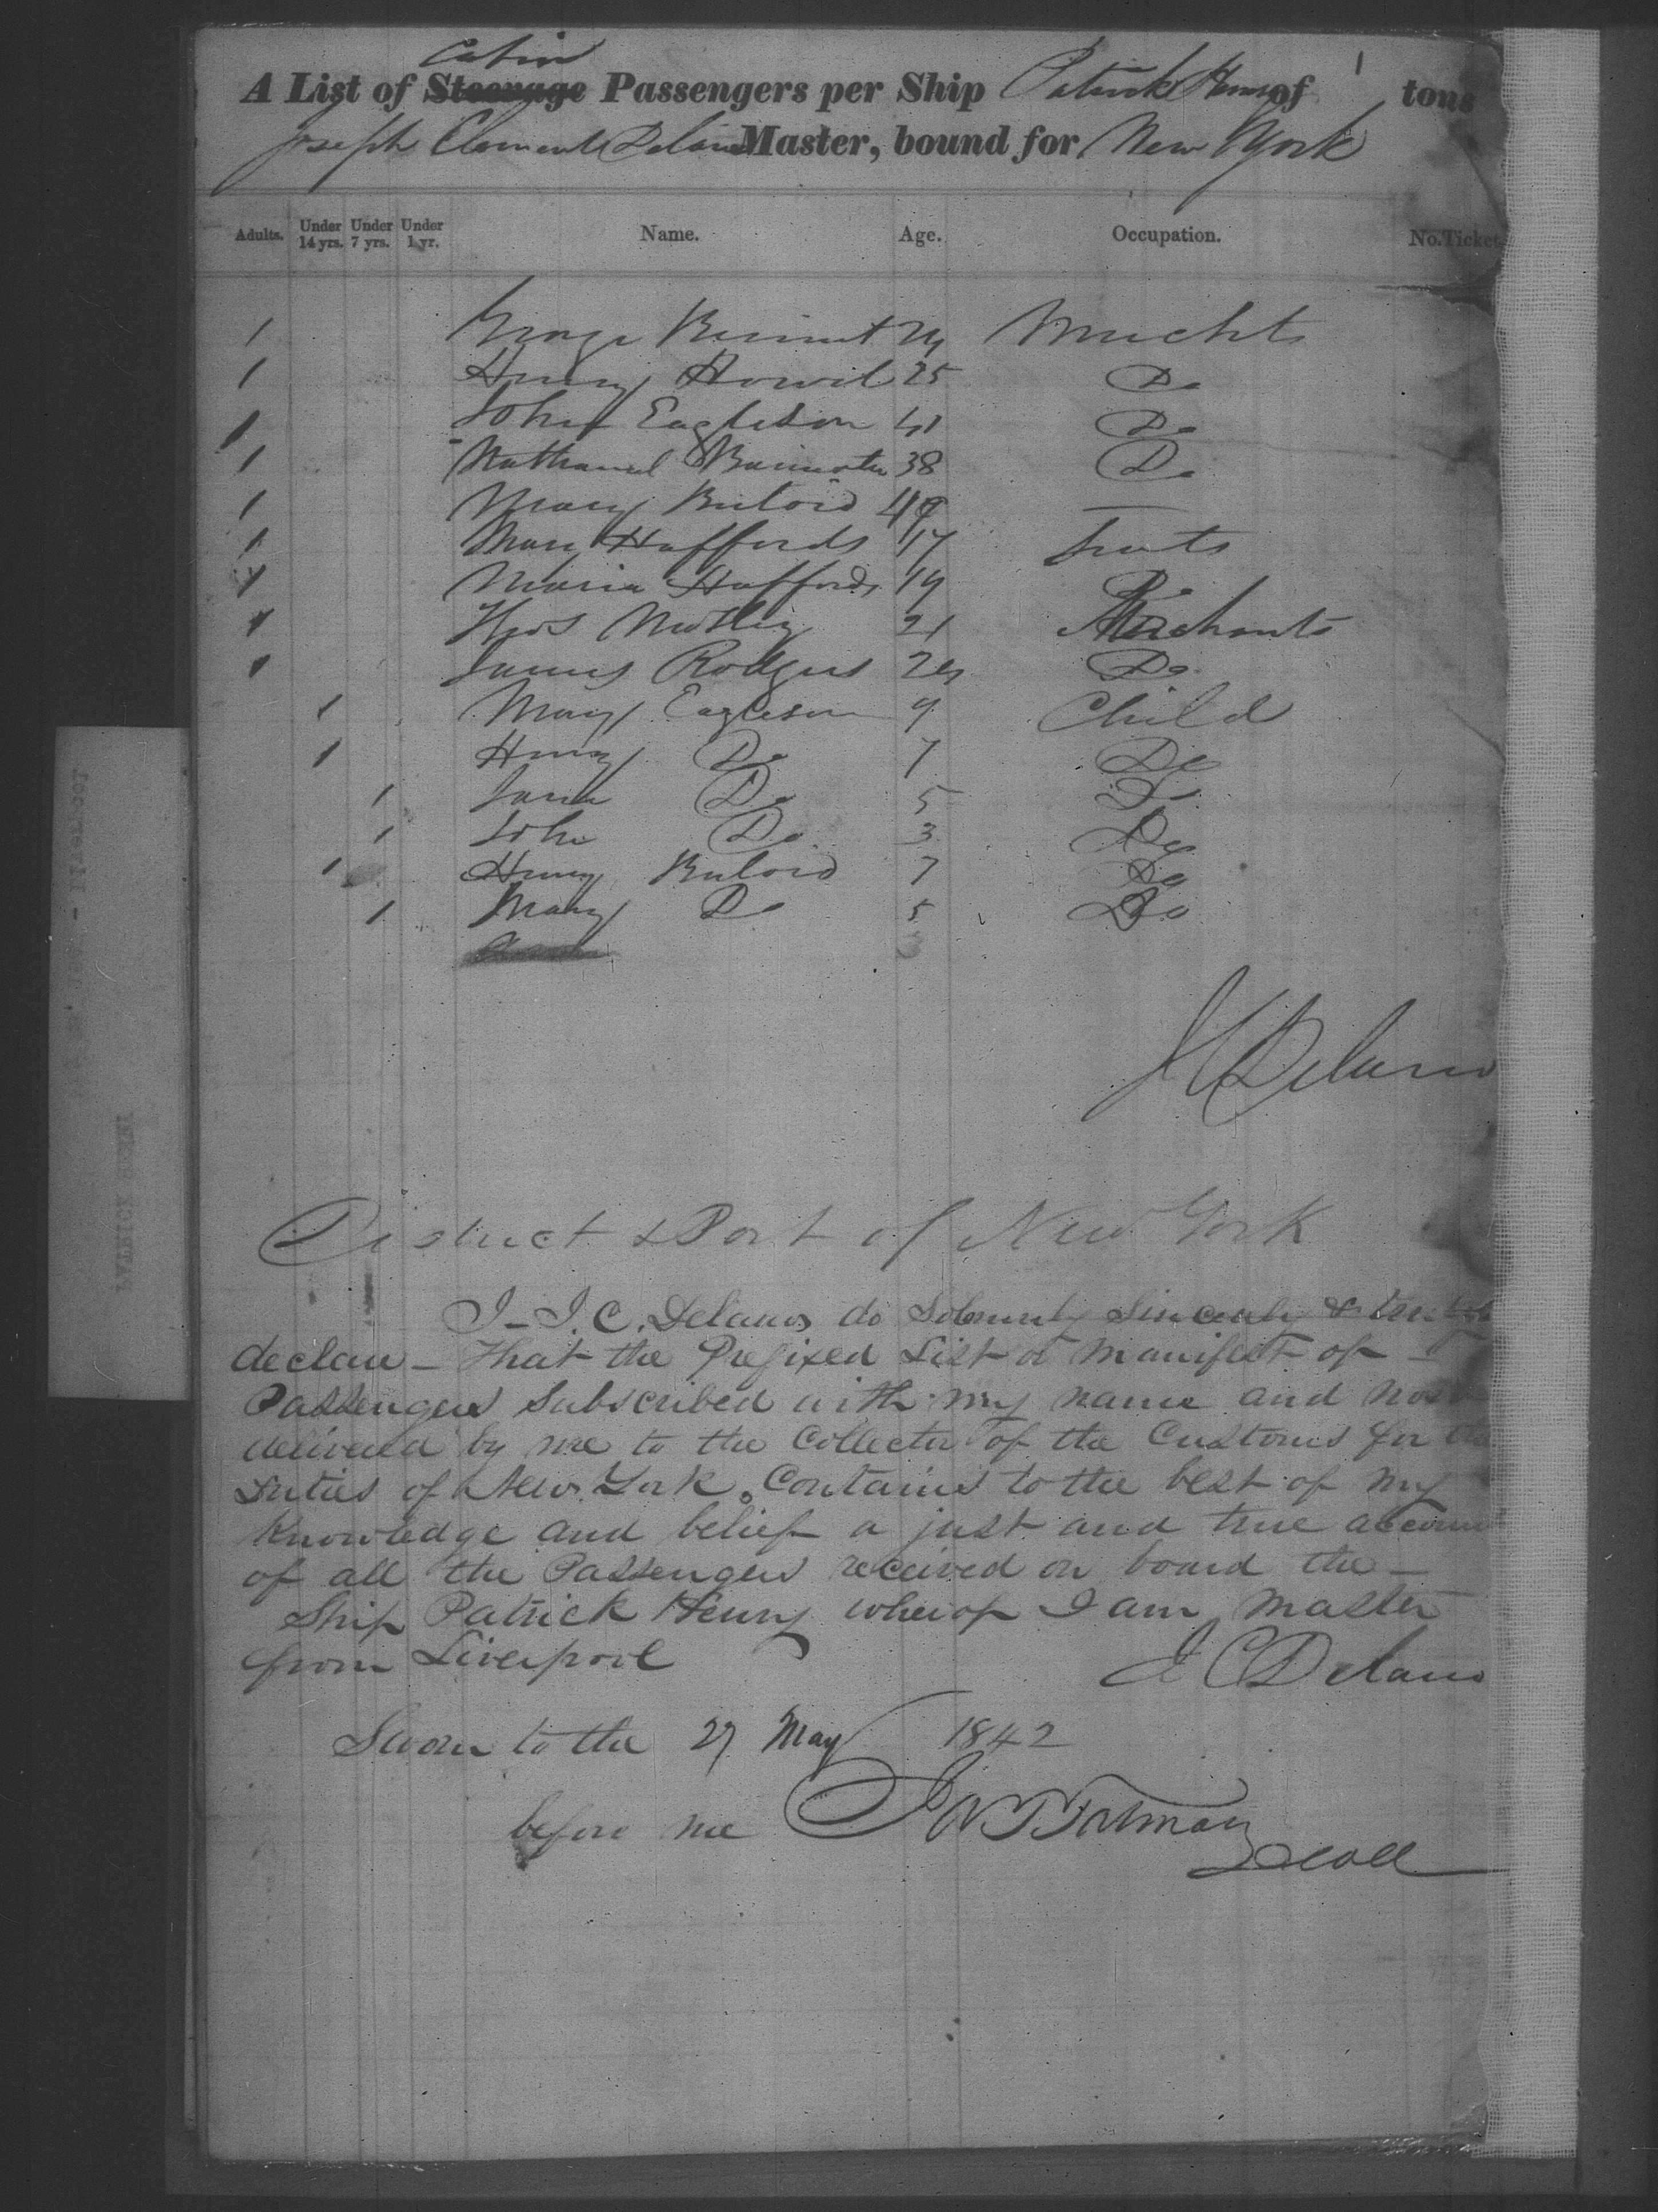 Cabin
A List of Steerage Passengers per Ship Patrick Henry of tons
Joseph Clement Delano Master, bound for New York
Adults. Under 14 yrs. Under 7 yrs. Under 1 yr. Name. Age. Occupation. No. Ticket
1 George 
1 Henry 25 Do
1 John Eagleson 41 Do
1 Nathaniel 38 Do
1 Mary 49 —
1 Mary Huffords 17
1 Maria Huffords 19 Do
1 Thos 21 Merchants
1 James Rodgers Do
1 Mary Eagleson 9 Child
1 Henry Do 7 Do
1 Jane Do 5 Do
1 John Do 3 Do
1 Henry 7 Do
1 Mary Do 5 Do
J C Delano
District & Port of New York
I - J. C. Delano do Solemnly Sincerely &
declare - That the Prefixed List or Manifest of
Passengers Subscribed with my name and now
delivered by me to the Collector of the Customs for the
Duties of New York. Contains to the best of my
Knowledge and belief a just and true account
of all the Passengers received on board the -
Ship Patrick Henry wherof I am Master
from Liverpool
J C Delano
Sworn to the 27 May 1842
before me